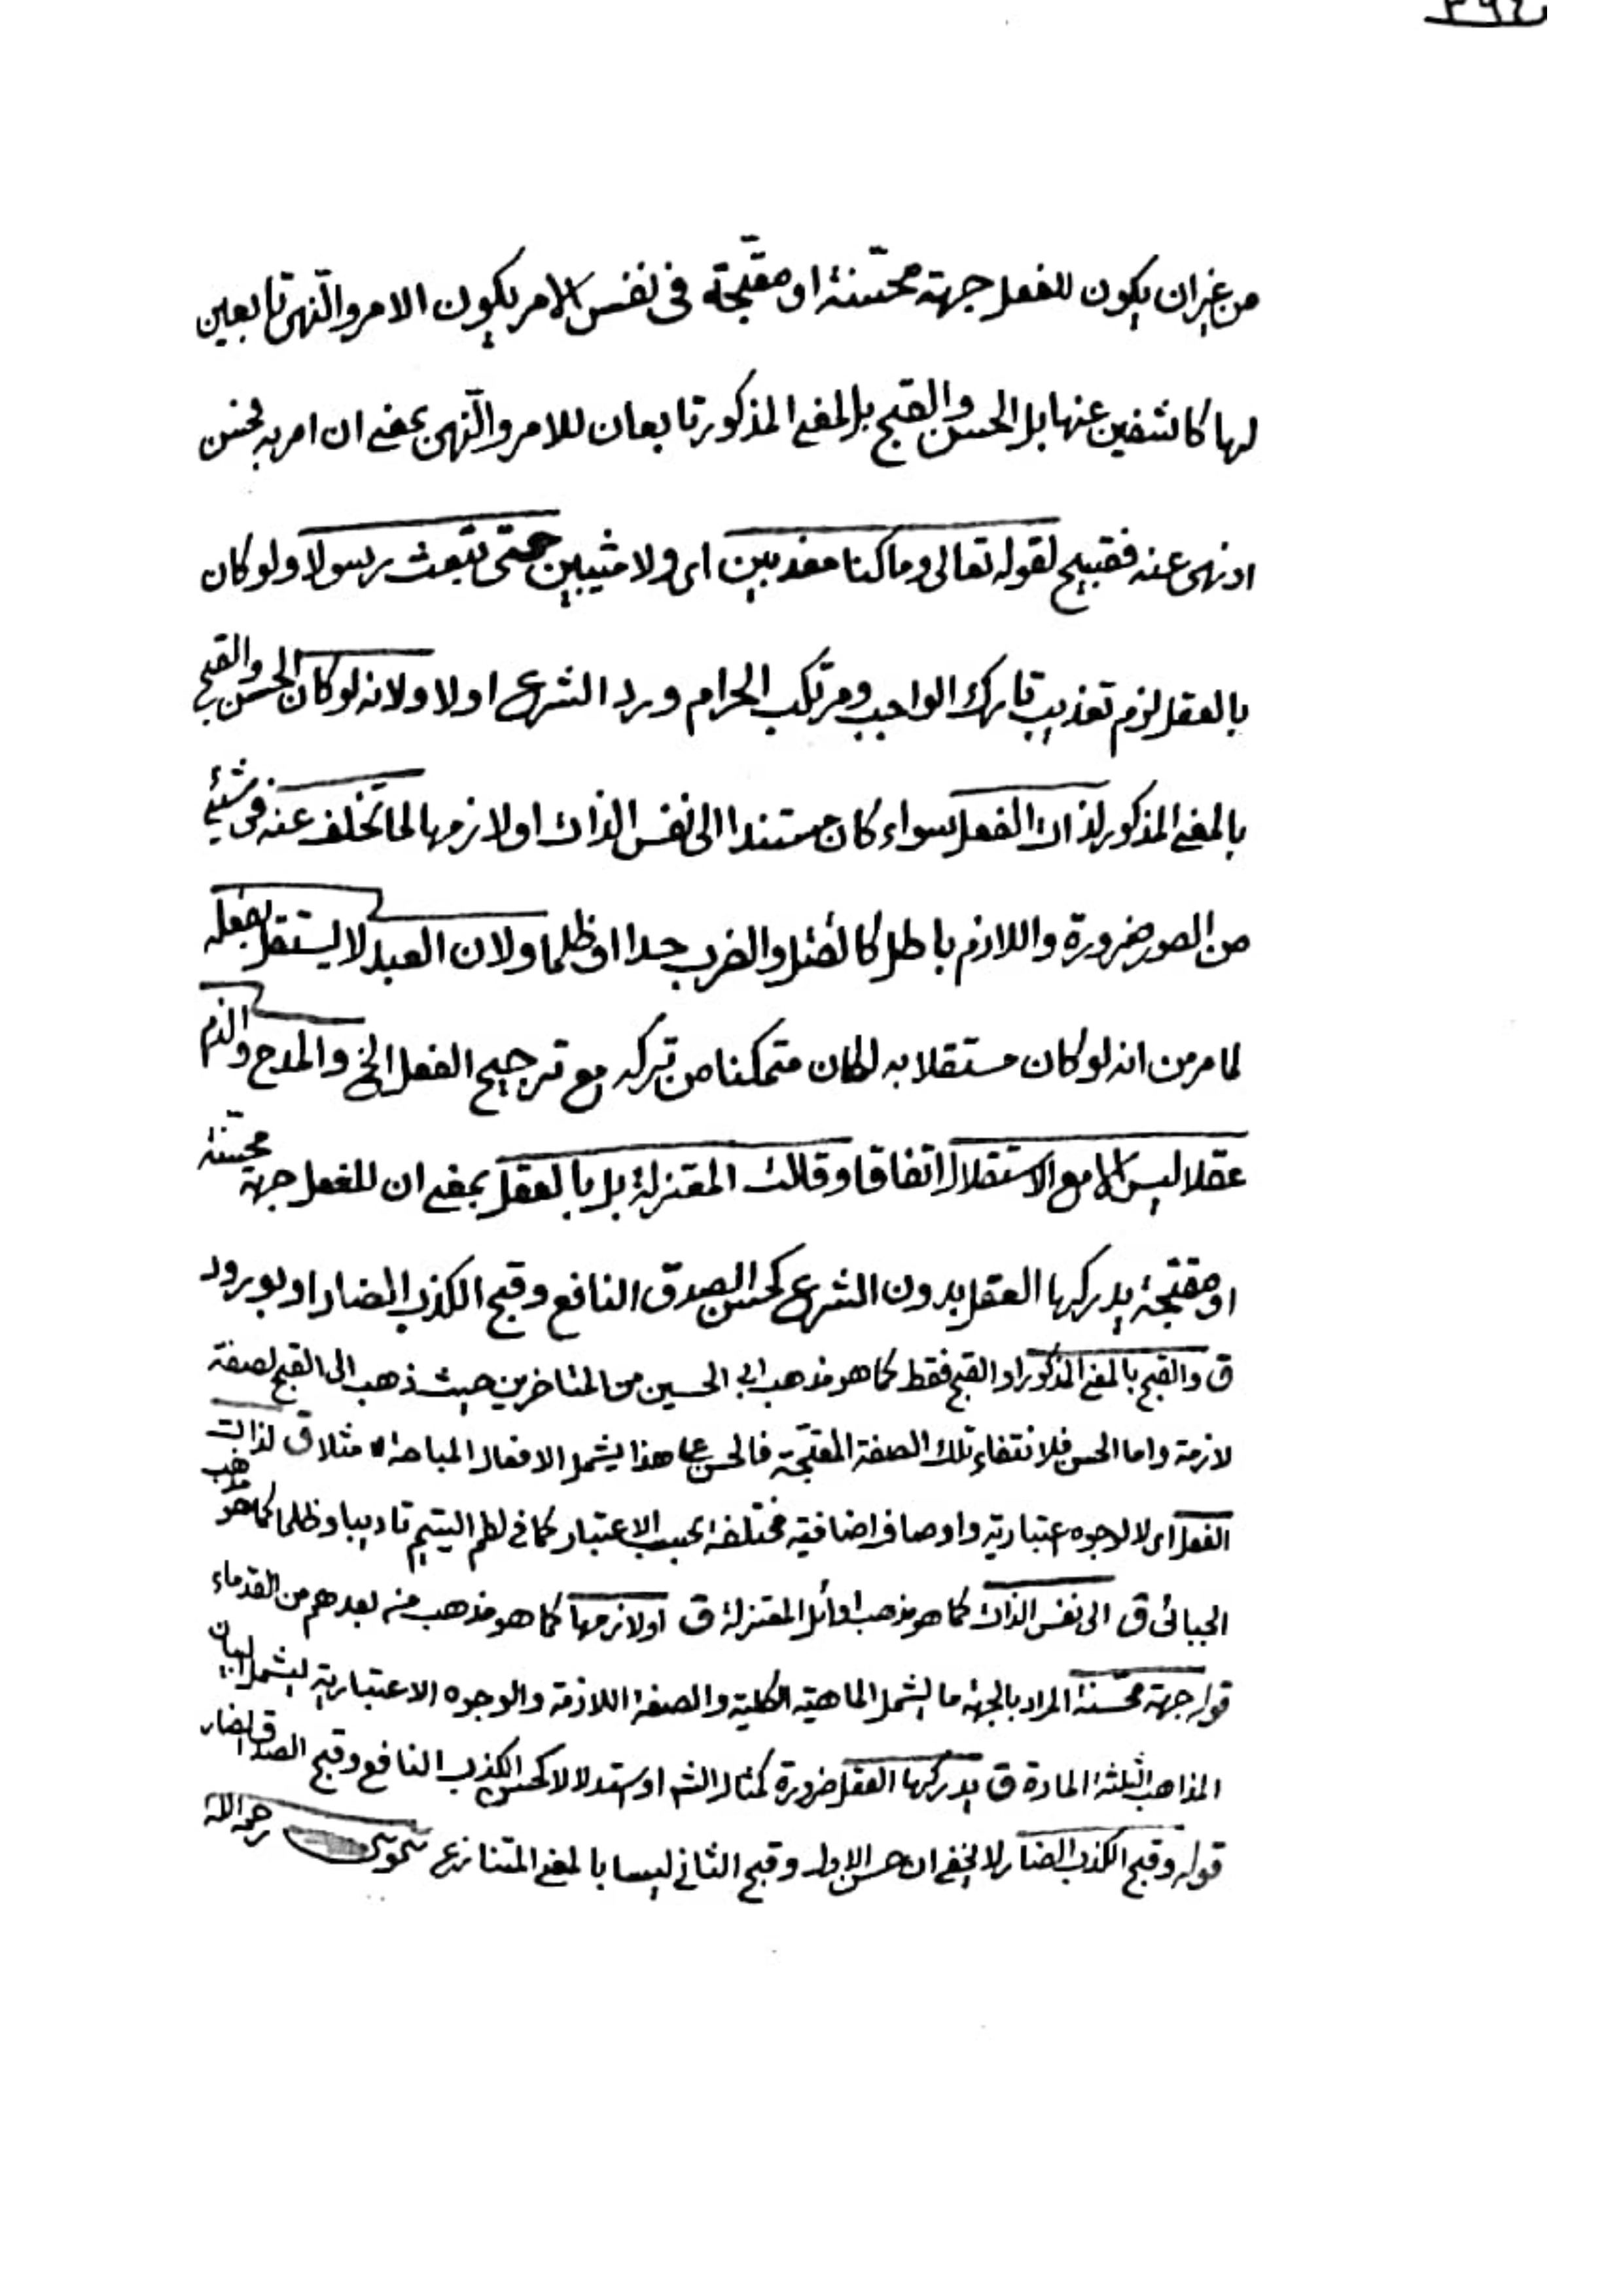 من غير ان يكون للفعل جهة محسّنة او مقبّحة فى نفس الامر يكون الامر والنّهى تابعين
لها كاشفين عنها بل الحسن والقبح بالمعنى المذكور تابعان للامر والنّهى بمعنى ان امر به فحسن
او نهى عنه فقبيح لقوله تعالى وما كنا معذبين اى ولا مثيبين حتى نبعث رسولا ولو كان
بالعقل لزم تعذيب تارك الواجب ومرتكب الحرام ورد الشرع اولا ولانه لو كان الحسن والقبح
بالمعنى المذكور لذات الفعل سواء كان مستندا الى نفس الذات او لازمها لما تخلف عنه فى شئ
من الصور ضرورة واللازم باطل كالقتل والضرب حدا او ظلما ولان العبد لا يستقل بفعله
لما مر من انه لو كان مستقلا به لكان متمكنا من تركه مع ترجيح الفعل الخ والمدح والذم
عقلا ليس الا مع الاستقلال اتفاقا وقالت المعتزلة بل بالعقل بمعنى ان للفعل جهة محسّنة
او مقبّحة يدركها العقل بدون الشرع كحسن الصدق النافع وقبح الكذب المضار او بورود
ق والقبح بالمعنى المذكور او القبح فقط كما هو مذهب ابى الحسين من المتاخرين حيث ذهب الى القبح لصفة
لازمة واما الحسن فلانتفاء تلك الصفة المقبّحة فالحسن على هذا يشمل الافعال المباحة مثلا ق لذات
الفعل اى لا لوجوه اعتبارية واوصاف اضافية مختلفة بحسب الاعتبار كما فى لطم اليتيم تاديبا وظلما كما هو مذهب
الجبائى ق الى نفس الذات كما هو مذهب اوائل المعتزلة ق او لازمها كما هو مذهب من بعدهم من القدماء
قوله جهة محسّنة المراد بالجهة ما يشمل الماهية الكلية والصفة اللازمة والوجوه الاعتبارية ليشمل لبيان
المذاهب الثلثة المادة ق يدركها العقل ضرورة كمثال الشه او ستدلالا كحسن الكذب النافع وقبح الصدق الضار
قوله وقبح الكذب الضار لا يخفى ان حسن الاول وقبح الثانى ليسا بالمعنى المتنازع رحمه الله